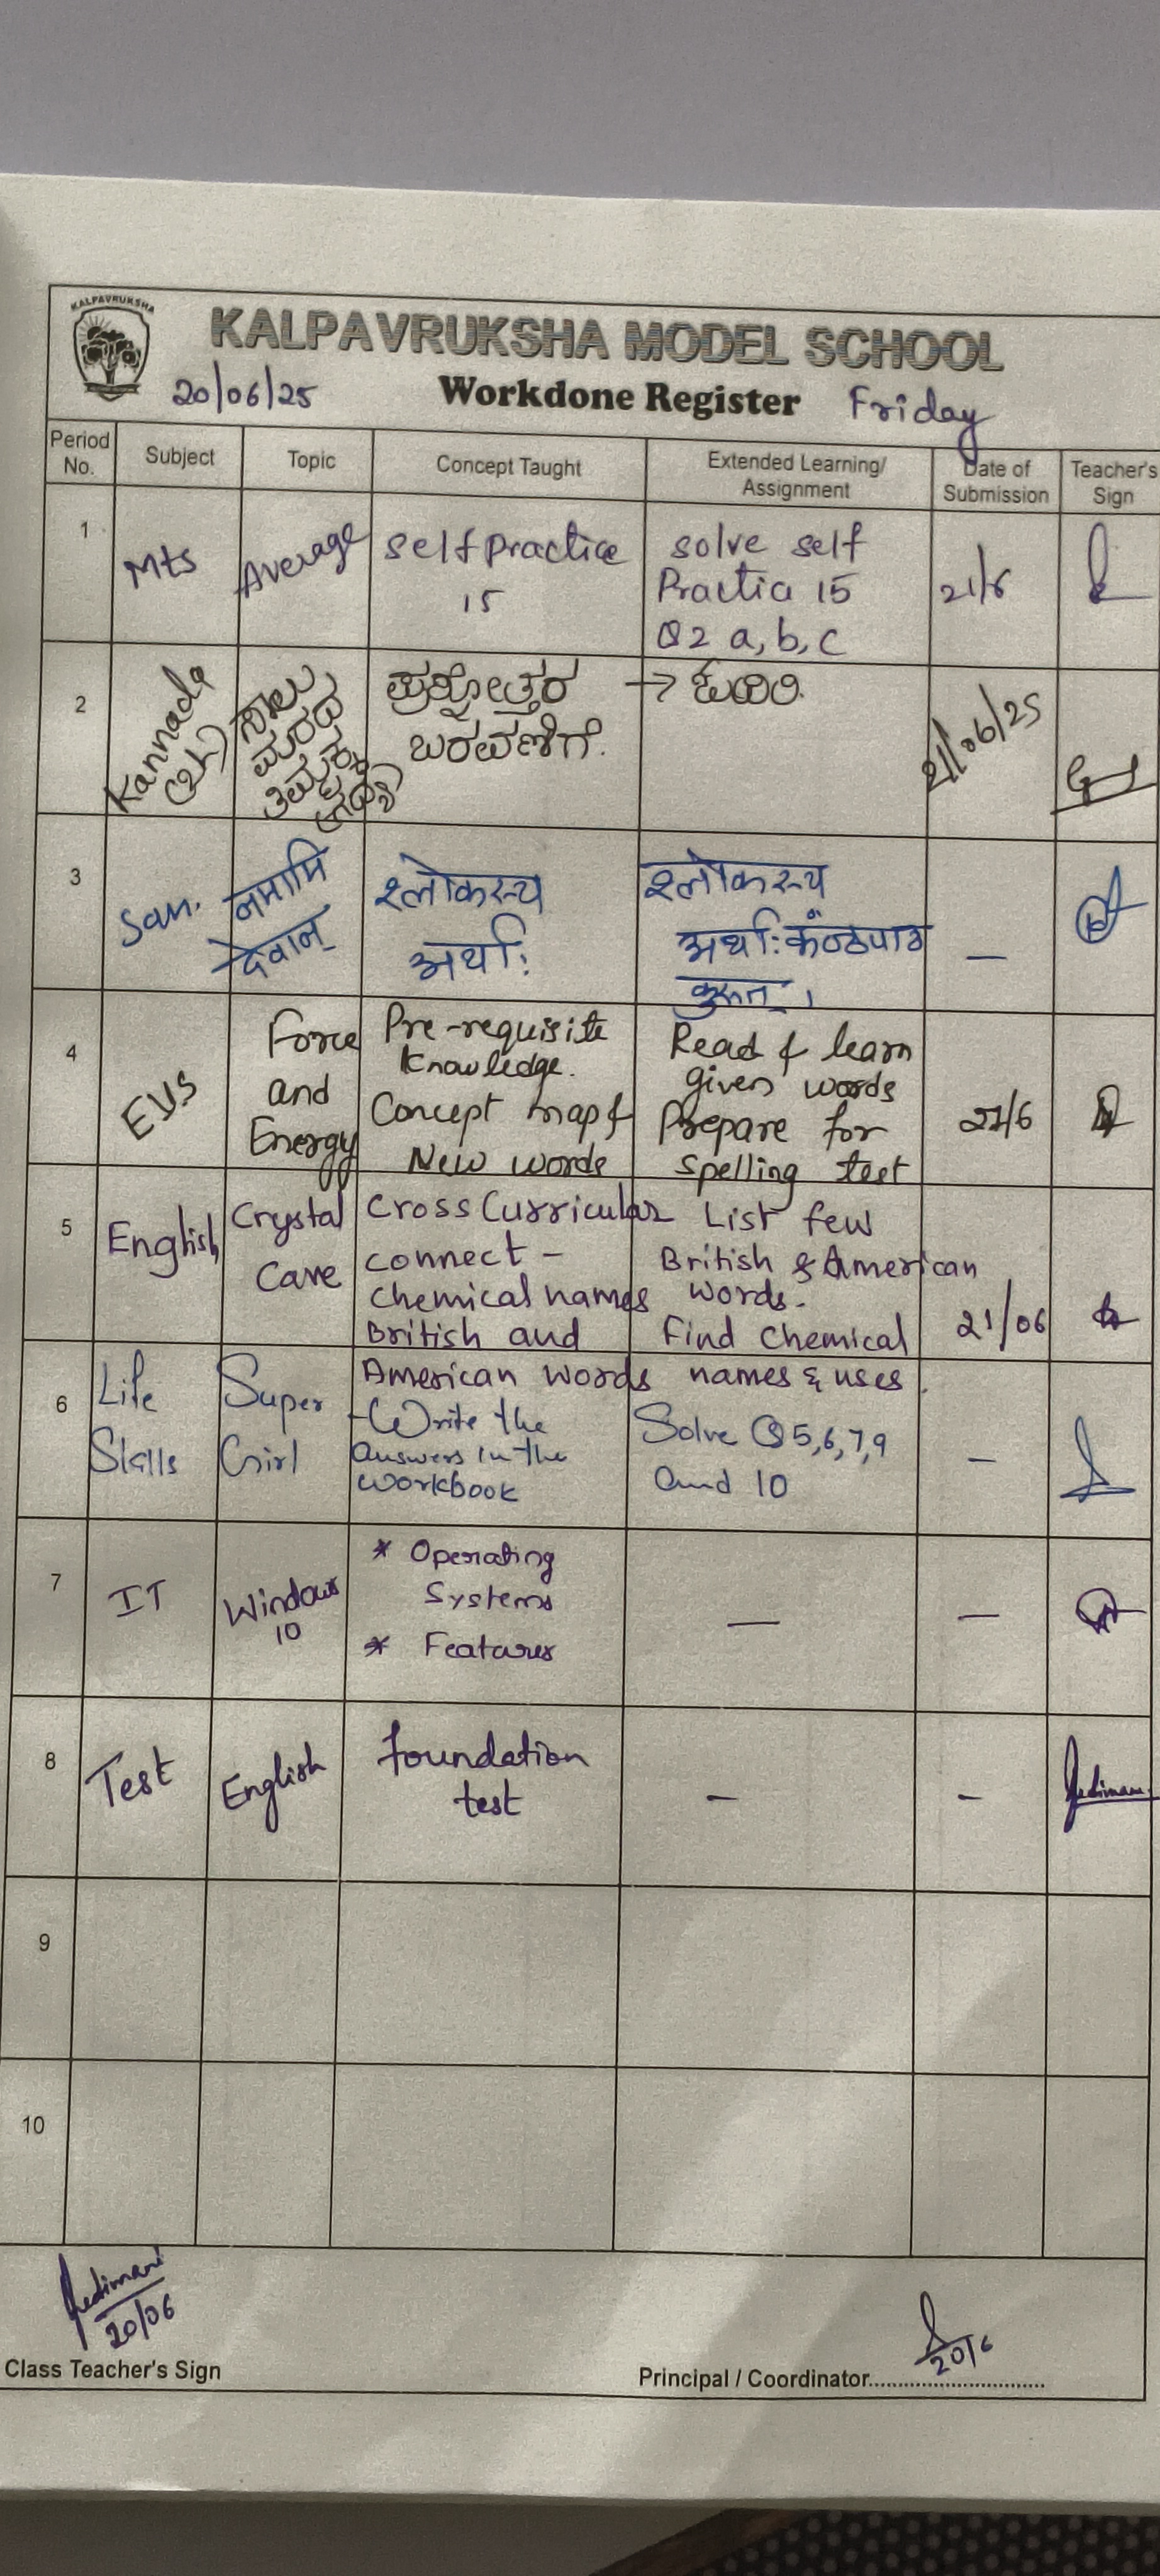 KALPAVRUKSHA
KALPAVRUKSHA MODEL SCHOOL
20/06/25 Workdone Register Friday
Period No. Subject Topic Concept Taught Extended Learning/ Assignment Date of Submission Teacher's Sign
1 Mts Average self practice 15 solve self Practia 15 Q2 a, b, c 21/6
2 Kannada (2L) ಸಾಲು ಮರದ ತಿಮ್ಮಕ್ಕ ಪ್ರಶ್ನೋತ್ತರ ಬರವಣಿಗೆ. → ಓದಿರಿ. 21/06/25
3 San. नमामि देवान् श्लोकस्य अर्थाः श्लोकस्य अर्थाः कंण्ठपाठ कुरुत । —
4 EVS Force and Energy Pre-requisite Knowledge. Concept map & New words Read & learn given words Prepare for spelling test
5 English Crystal Cave Cross Curricular connect - Chemical names British and American words List few British & American words. Find chemical names & uses. 21/06
6 Life Skills Super Girl - Write the answers in the workbook Solve Q5,6,7,9 and 10 –
7 IT Windows 10 * Operating Systems * Features — —
8 Test English foundation test – –
9
10
20/06
20/6
Class Teacher's Sign
Principal / Coordinator..............................